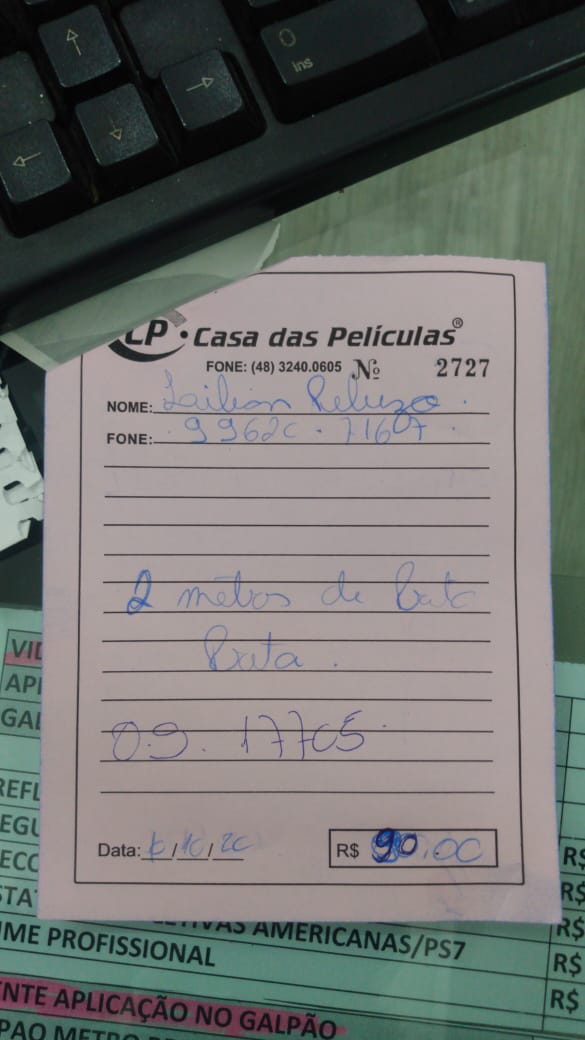 Ins
CP · Casa das Películas®
FONE: (48) 3240.0605 Nº 2727
NOME:
FONE: 99620.7167.
2 metros de
Preta.
O.S. 17705
Data: /10/20 R$ 90,00
VI
API
GAL
REFL
EGU
R$
R$
STA
TIVAS AMERICANAS/PS7 R$
IME PROFISSIONAL R$
R$
NTE APLICAÇÃO NO GALPÃO
PAO METRO